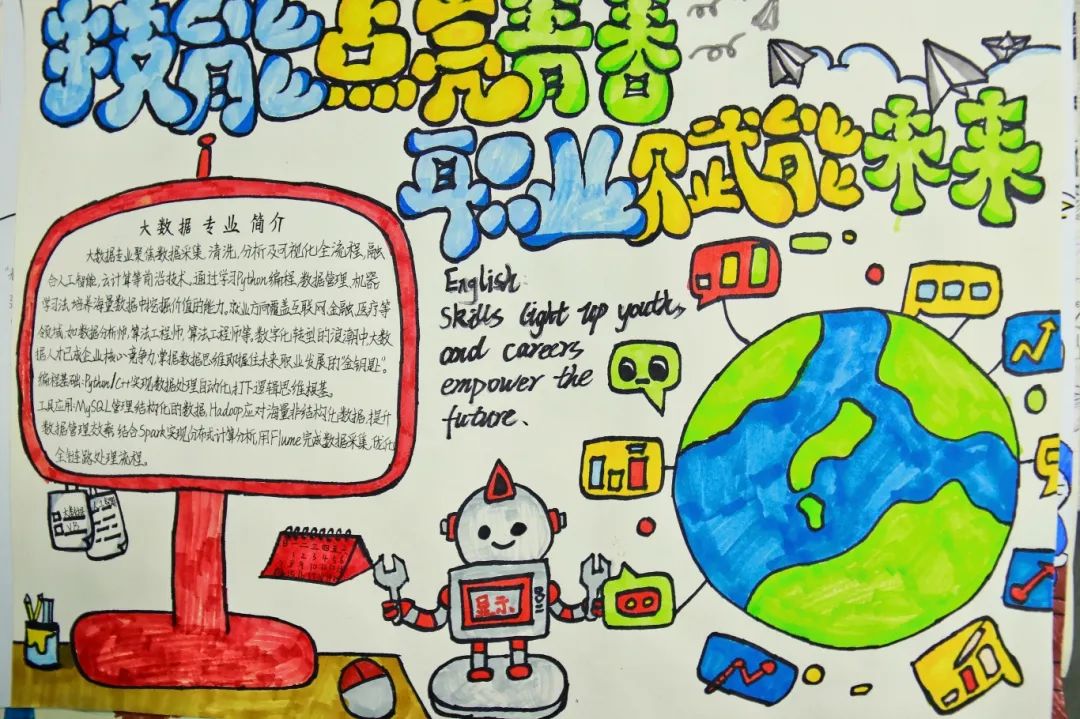 技能点亮青春
职业赋能未来
大数据专业简介
大数据专业聚焦数据采集、清洗、分析及可视化全流程,融
合人工智能、云计算等前沿技术。通过学习Python编程、数据管理、机器
学习法,培养海量数据中挖掘价值的能力。就业方向覆盖互联网、金融、医疗等
领域,如数据分析师,算法工程师,算法工程师等,数字化转型的浪潮中大数
据人才已成企业核心竞争力,掌握数据思维即握住未来职业发展的"金钥匙"。
编程基础:Python/C++实现数据处理自动化,打下逻辑思维根基。
工具应用:MySQL管理结构化的数据,Hadoop应对海量非结构化数据,提升
数据管理效率,结合Spark实现分布式计算分析,用Flume完成数据采集,优化
全链路处理流程。
English:
Skills light up youth,
and careers
empower the
future.
大数据
显示